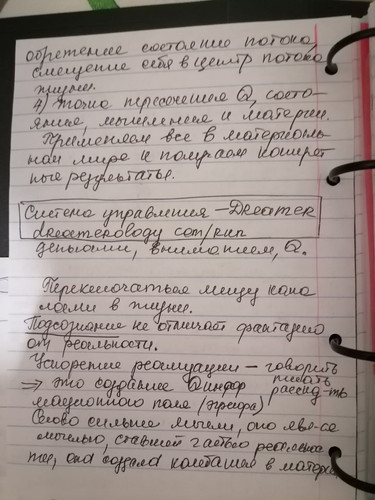 обретение состояние потока,
смещение себя в центр потока
жизни.
4) точка пересечения Q, состо-
яния, мышления и материи.
Применяем все в материаль-
ном мире и получаем конкрет
ные результаты.
Система управления –
деньгами, вниманием, Q.
Переключаться между кана
лами в жизни.
Подсознание не отличает фантазию
от реальности.
Ускорение реализации – говорить
писать
⇒ это создание Q инфор
мационного поля /эгрефа)
Слово сильнее мысли, оно явл-ся
мыслью, ставшей частью реальнос
ти, она создала колебания в матери